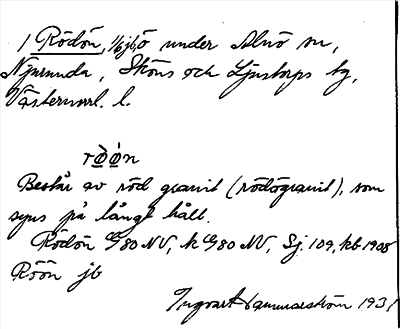 1 Rödön, 1/6 jb, ö under Alnö sn,
Njurunda, Sköns och Ljustorps tg,
Västernorrl. l.
rö̀ó̀n
Består av röd granit (rödögranit), som
syns på långt håll.
Rödön 80 NV, k 80 NV, Sj. 109, kb 1908
Röön jb
Ingvart Hammarström 1931